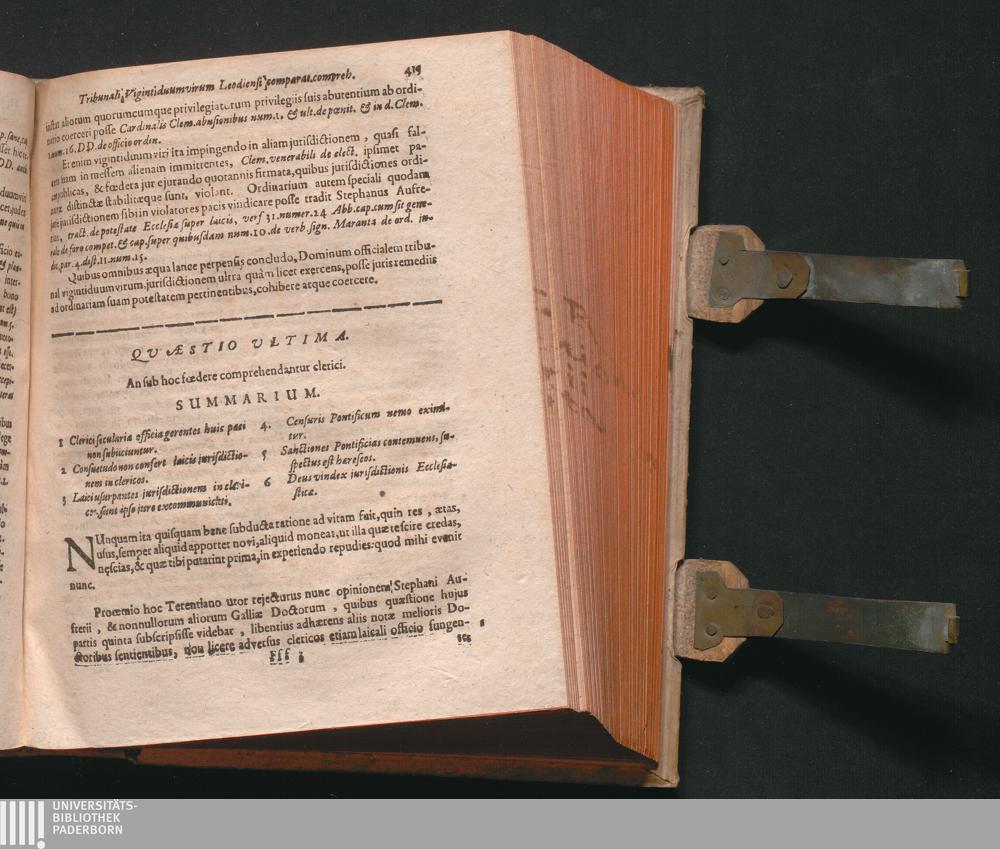 Tribunali, Vigintiduumvirum Leodiensi, comparat. compreh. 419
aliorum quorumcumque privilegiatorum privilegiis suis abutentium ab ordi-
nario coerceri posse Cardinalis Clem. abusionibus num. 1. & ult. de pœnit. & in d. Clem.
1. num. 16. DD. de officio ordin.
Et enim vigintiduumviri ita impingendo in aliam jurisdictionem, quasi fal-
cem suam in messem alienam immittentes, Clem. venerabili de elect. ipsimet pa-
ces publicas, & fœdera jure jurando quotannis firmata, quibus jurisdictiones ordi-
nariæ distinctæ stabilitæque sunt, violant. Ordinarium autem speciali quodam
jure jurisdictionem sibi in violatores pacis vindicare posse tradit Stephanus Aufre-
rius, tract. de potestate Ecclesiæ super laicis, vers 31. numer. 24 Abb. cap. cum sit gene-
rale de foro compet. & cap. super quibusdam num. 10. de verb. sign. Maranta de ord. iu-
dic. par. 4. dist. 11. num. 15.
Quibus omnibus æqua lance perpensis concludo, Dominum officialem tribu-
nal vigintiduumvirum, jurisdictionem ultra quàm licet exercens, posse juris remediis
ad ordinariam suam potestatem pertinentibus, cohibere atque coercere.
QVÆSTIO VLTIMA.
An sub hoc fœdere comprehendantur clerici.
SUMMARIUM.
1 Clerici secularia officia gerentes huic paci
non subiiciuntur.
2 Consuetudo non confert laicis jurisdictio-
nem in clericos.
3 Laici usurpantes jurisdictionem in cleri-
cos, sunt ipso jure excommunicati.
4. Censuris Pontificum nemo eximi-
tur.
5 Sanctiones Pontificias contemnens, su-
spectus est hæreseos.
6 Deus vindex jurisdictionis Ecclesia-
sticæ.
NUnquam ita quisquam bene subducta ratione ad vitam fuit, quin res, ætas,
usus, semper aliquid apportet novi, aliquid moneat, ut illa quæ te scire credas,
nescias, & quæ tibi putarint prima, in experiendo repudies: quod mihi evenit
nunc.
Proœmio hoc Terentiano utor rejecturus nunc opinionem Stephani Au-
frerii, & nonnullorum aliorum Galliæ Doctorum, quibus quæstione hujus
partis quinta subscripsisse videbar, libentius adhærens aliis notæ melioris Do-
ctoribus sentientibus, non licere adversus clericos etiam laicali officio fungen-
Fff 3
UNIVERSITÄTS-
BIBLIOTHEK
PADERBORN